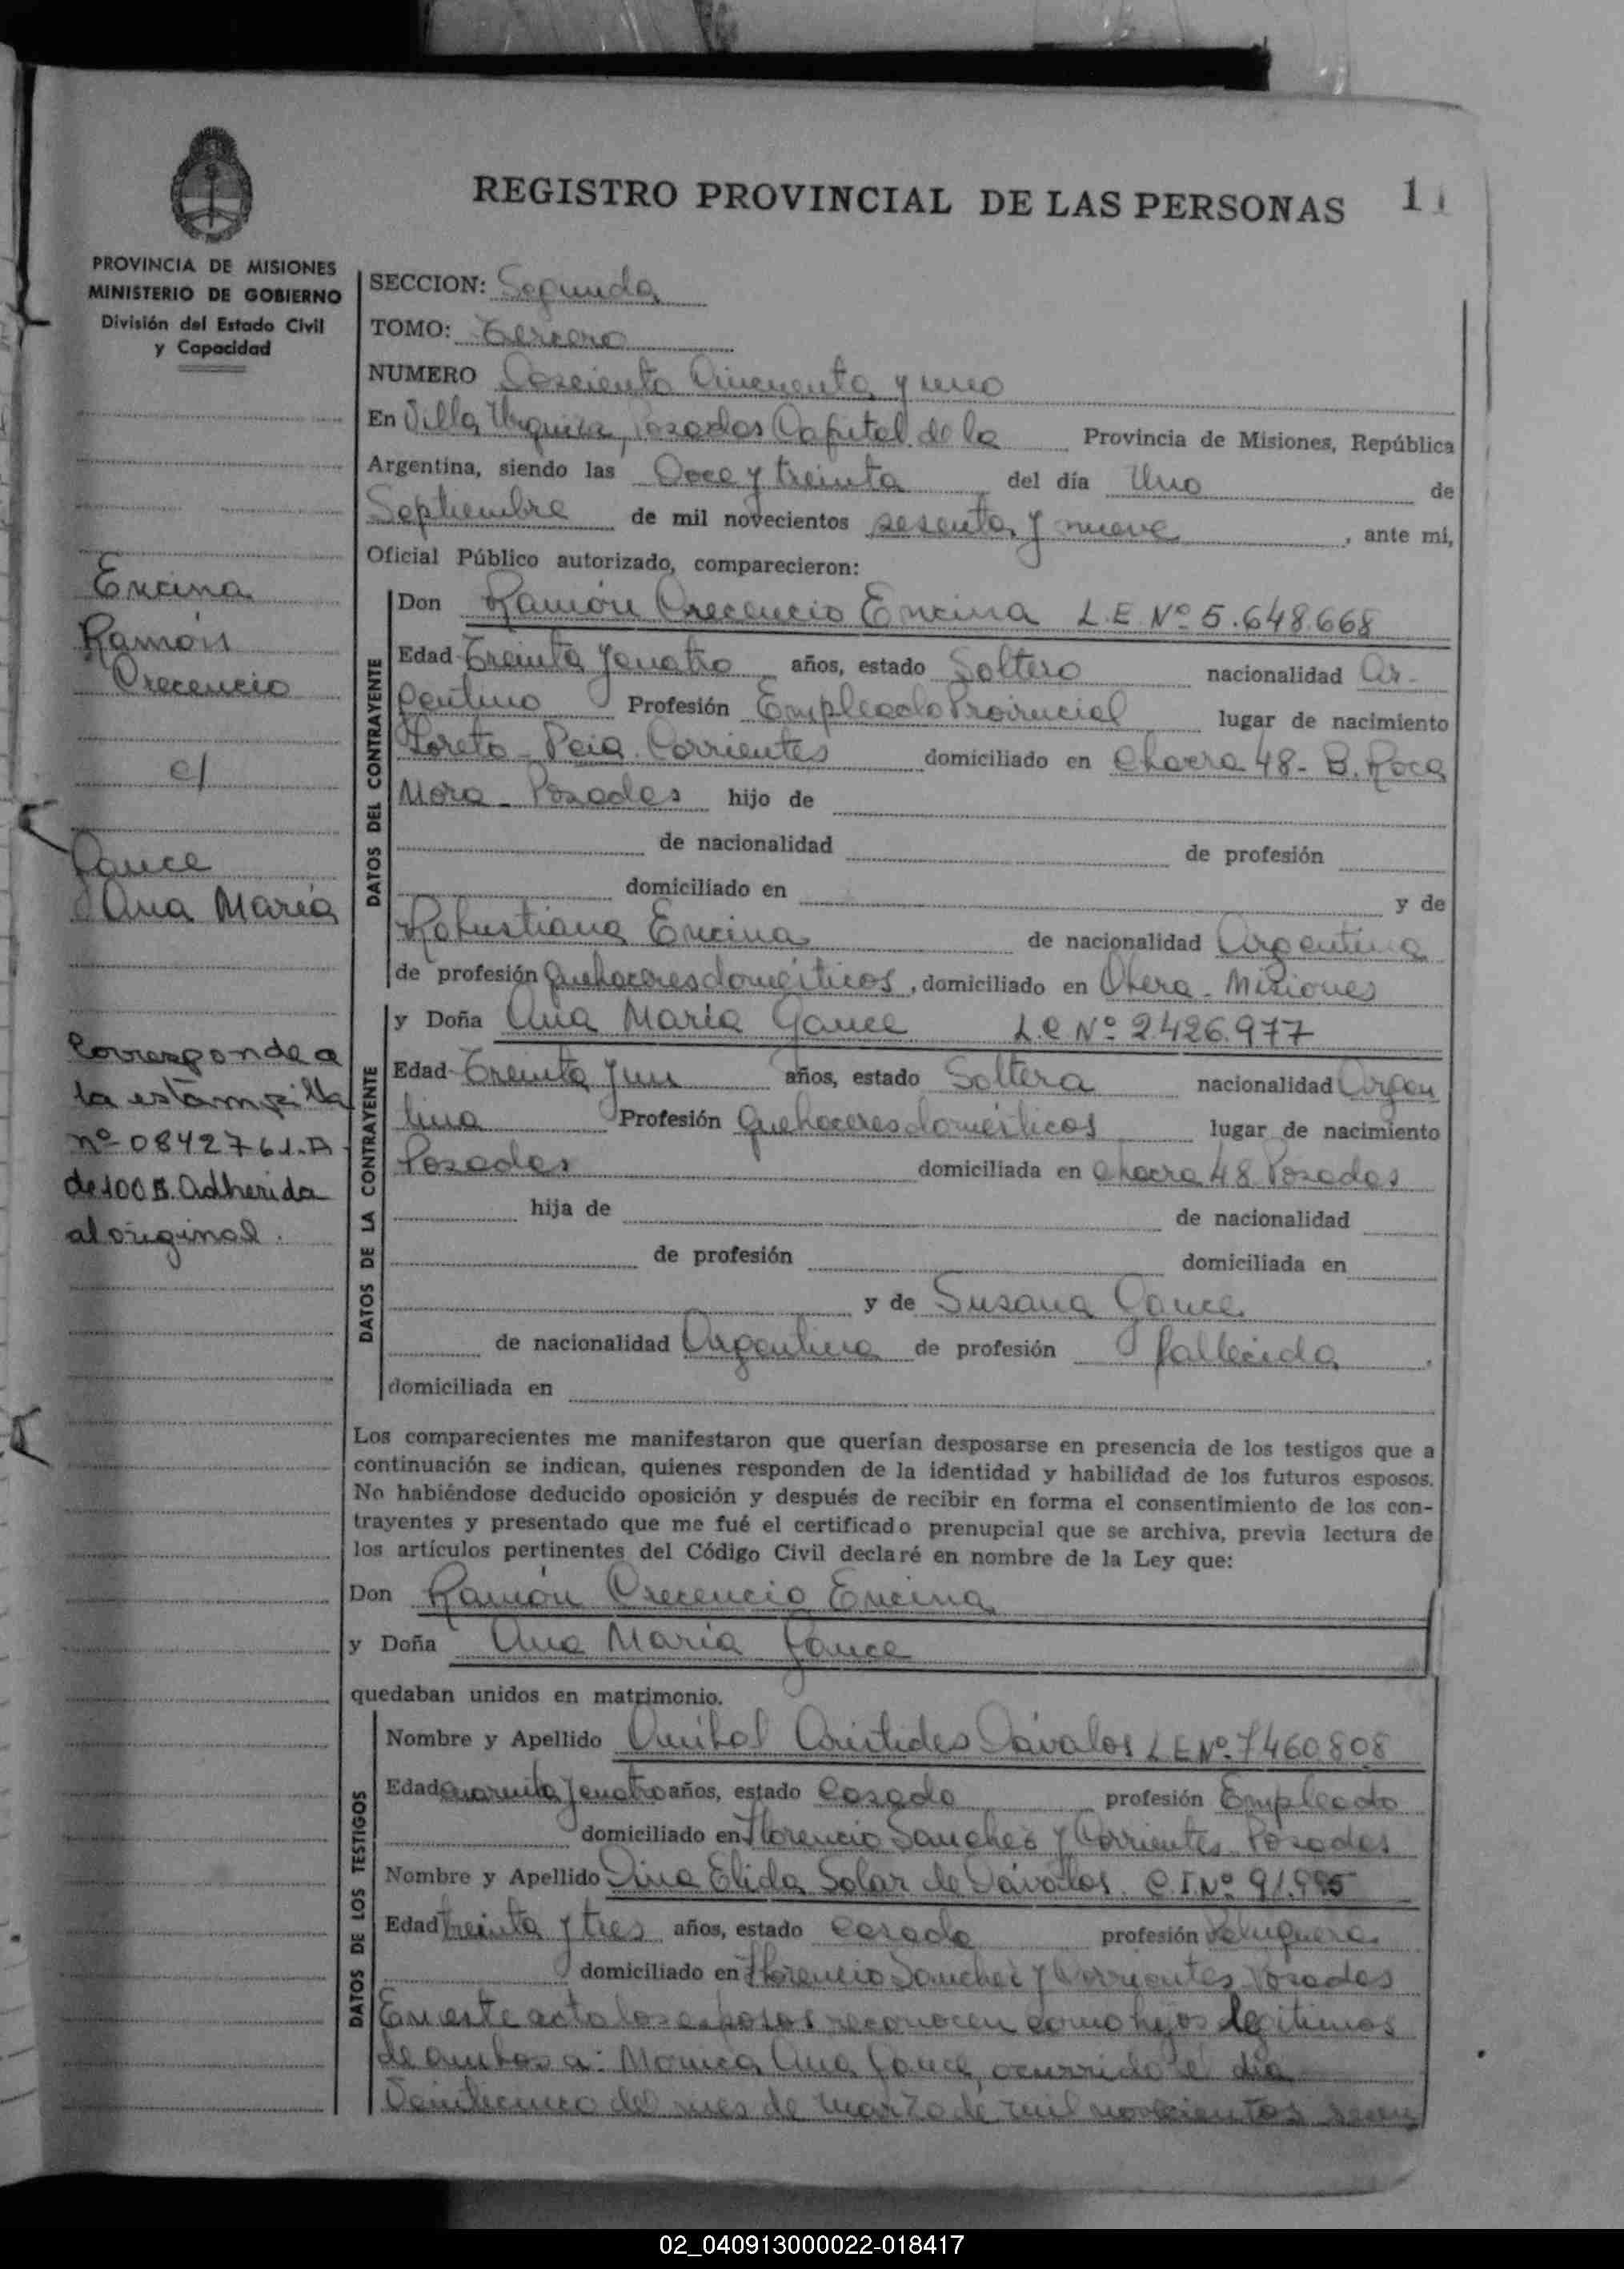 REGISTRO PROVINCIAL DE LAS PERSONAS
1
PROVINCIA DE MISIONES
MINISTERIO DE GOBIERNO
División del Estado Civil
y Capacidad
Encina
Ramón
Crecencio
c/
Gauce
Ana María
Corresponde a
la estampilla
nº 0842761.A
de 100 $. Adherida
al original.
SECCION: Segunda
TOMO: Tercero
NUMERO Dosciento Cincuenta y uno
En Villa Urquiza, Posadas Capital de la Provincia de Misiones, República
Argentina, siendo las Doce y treinta del día Uno de
Septiembre de mil novecientos sesenta y nueve, ante mi,
Oficial Público autorizado, comparecieron:
DATOS DEL CONTRAYENTE
Don Ramón Crecencio Encina L.E Nº 5.648.668
Edad Treinta y cuatro años, estado Soltero nacionalidad Ar-
gentino Profesión Empleado Provincial lugar de nacimiento
Loreto - Pcia. Corrientes domiciliado en Chacra 48 - B. Roca
Mora - Posadas hijo de
de nacionalidad de profesión
domiciliado en y de
Robustiana Encina de nacionalidad Argentina
de profesión Quehaceres domésticos, domiciliado en Obera - Misiones
DATOS DE LA CONTRAYENTE
y Doña Ana María Gauce L.C Nº 2426.977
Edad Treinta y un años, estado Soltera nacionalidad Argen
tina Profesión Quehaceres domésticos lugar de nacimiento
Posadas domiciliada en Chacra 48 Posadas
hija de de nacionalidad
de profesión domiciliada en
y de Susana Gauce
de nacionalidad Argentina de profesión fallecida.
domiciliada en
Los comparecientes me manifestaron que querían desposarse en presencia de los testigos que a
continuación se indican, quienes responden de la identidad y habilidad de los futuros esposos.
No habiéndose deducido oposición y después de recibir en forma el consentimiento de los con-
trayentes y presentado que me fué el certificado prenupcial que se archiva, previa lectura de
los artículos pertinentes del Código Civil declaré en nombre de la Ley que:
Don Ramón Crecencio Encina
y Doña Ana María Gauce
quedaban unidos en matrimonio.
DATOS DE LOS TESTIGOS
Nombre y Apellido Anibal Aristides Dávalos L E Nº 7460808
Edad cuarenta y cuatro años, estado Casado profesión Empleado
domiciliado en Florencio Sanchez y Corrientes Posadas
Nombre y Apellido Dina Elida Solar de Dávalos. C.I. Nº
Edad treinta y tres años, estado Casada profesión Peluquera
domiciliado en Florencio Sanchez y Corrientes Posadas
En este acto los esposos reconocen como hijos legitimos
de ambos a: Monica Ana Gauce, ocurrido el día
Veinticinco del mes de marzo de mil novecientos sesen
02_040913000022-018417